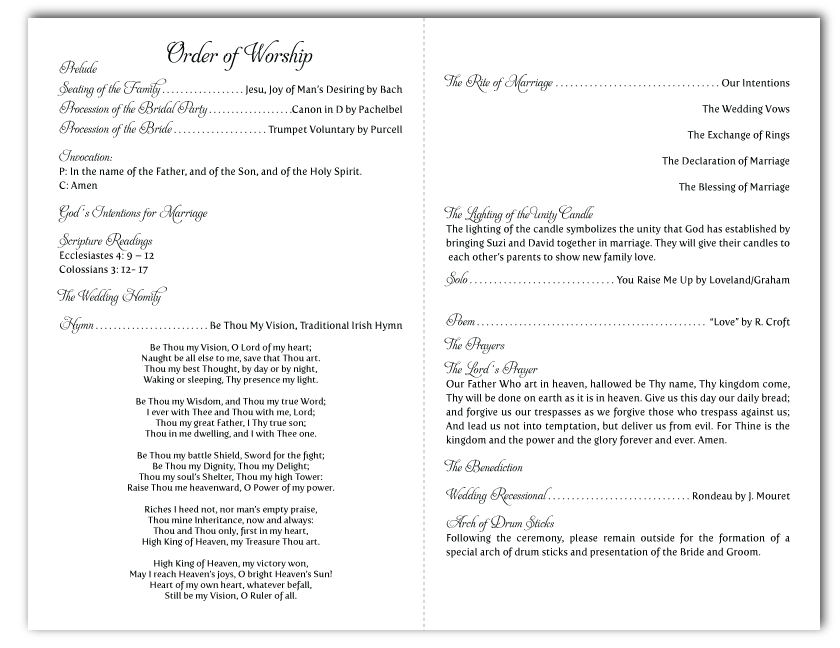 Order of Worship
Prelude
Seating of the Family . . . . . . . . . . . . . . . . . . Jesu, Joy of Man's Desiring by Bach
Procession of the Bridal Party . . . . . . . . . . . . . . . . . .Canon in D by Pachelbel
Procession of the Bride . . . . . . . . . . . . . . . . . . . . . Trumpet Voluntary by Purcell
Invocation:
P: In the name of the Father, and of the Son, and of the Holy Spirit.
C: Amen
God's Intentions for Marriage
Scripture Readings
Ecclesiastes 4: 9 – 12
Colossians 3: 12- 17
The Wedding Homily
Hymn . . . . . . . . . . . . . . . . . . . . . . . . . Be Thou My Vision, Traditional Irish Hymn
Be Thou my Vision, O Lord of my heart;
Naught be all else to me, save that Thou art.
Thou my best Thought, by day or by night,
Waking or sleeping, Thy presence my light.
Be Thou my Wisdom, and Thou my true Word;
I ever with Thee and Thou with me, Lord;
Thou my great Father, I Thy true son;
Thou in me dwelling, and I with Thee one.
Be Thou my battle Shield, Sword for the fight;
Be Thou my Dignity, Thou my Delight;
Thou my soul's Shelter, Thou my high Tower:
Raise Thou me heavenward, O Power of my power.
Riches I heed not, nor man's empty praise,
Thou mine Inheritance, now and always:
Thou and Thou only, first in my heart,
High King of Heaven, my Treasure Thou art.
High King of Heaven, my victory won,
May I reach Heaven's joys, O bright Heaven's Sun!
Heart of my own heart, whatever befall,
Still be my Vision, O Ruler of all.
The Rite of Marriage . . . . . . . . . . . . . . . . . . . . . . . . . . . . . . . . . . . . Our Intentions
The Wedding Vows
The Exchange of Rings
The Declaration of Marriage
The Blessing of Marriage
The Lighting of the unity Candle
The lighting of the candle symbolizes the unity that God has established by
bringing Suzi and David together in marriage. They will give their candles to
each other's parents to show new family love.
Solo . . . . . . . . . . . . . . . . . . . . . . . . . . . . . . . . You Raise Me Up by Loveland/Graham
Poem . . . . . . . . . . . . . . . . . . . . . . . . . . . . . . . . . . . . . . . . . . . . . . . . . . "Love" by R. Croft
The Prayers
The Lord's Prayer
Our Father Who art in heaven, hallowed be Thy name, Thy kingdom come,
Thy will be done on earth as it is in heaven. Give us this day our daily bread;
and forgive us our trespasses as we forgive those who trespass against us;
And lead us not into temptation, but deliver us from evil. For Thine is the
kingdom and the power and the glory forever and ever. Amen.
The Benediction
Wedding Recessional . . . . . . . . . . . . . . . . . . . . . . . . . . . . . . . Rondeau by J. Mouret
Arch of Drum Sticks
Following the ceremony, please remain outside for the formation of a
special arch of drum sticks and presentation of the Bride and Groom.